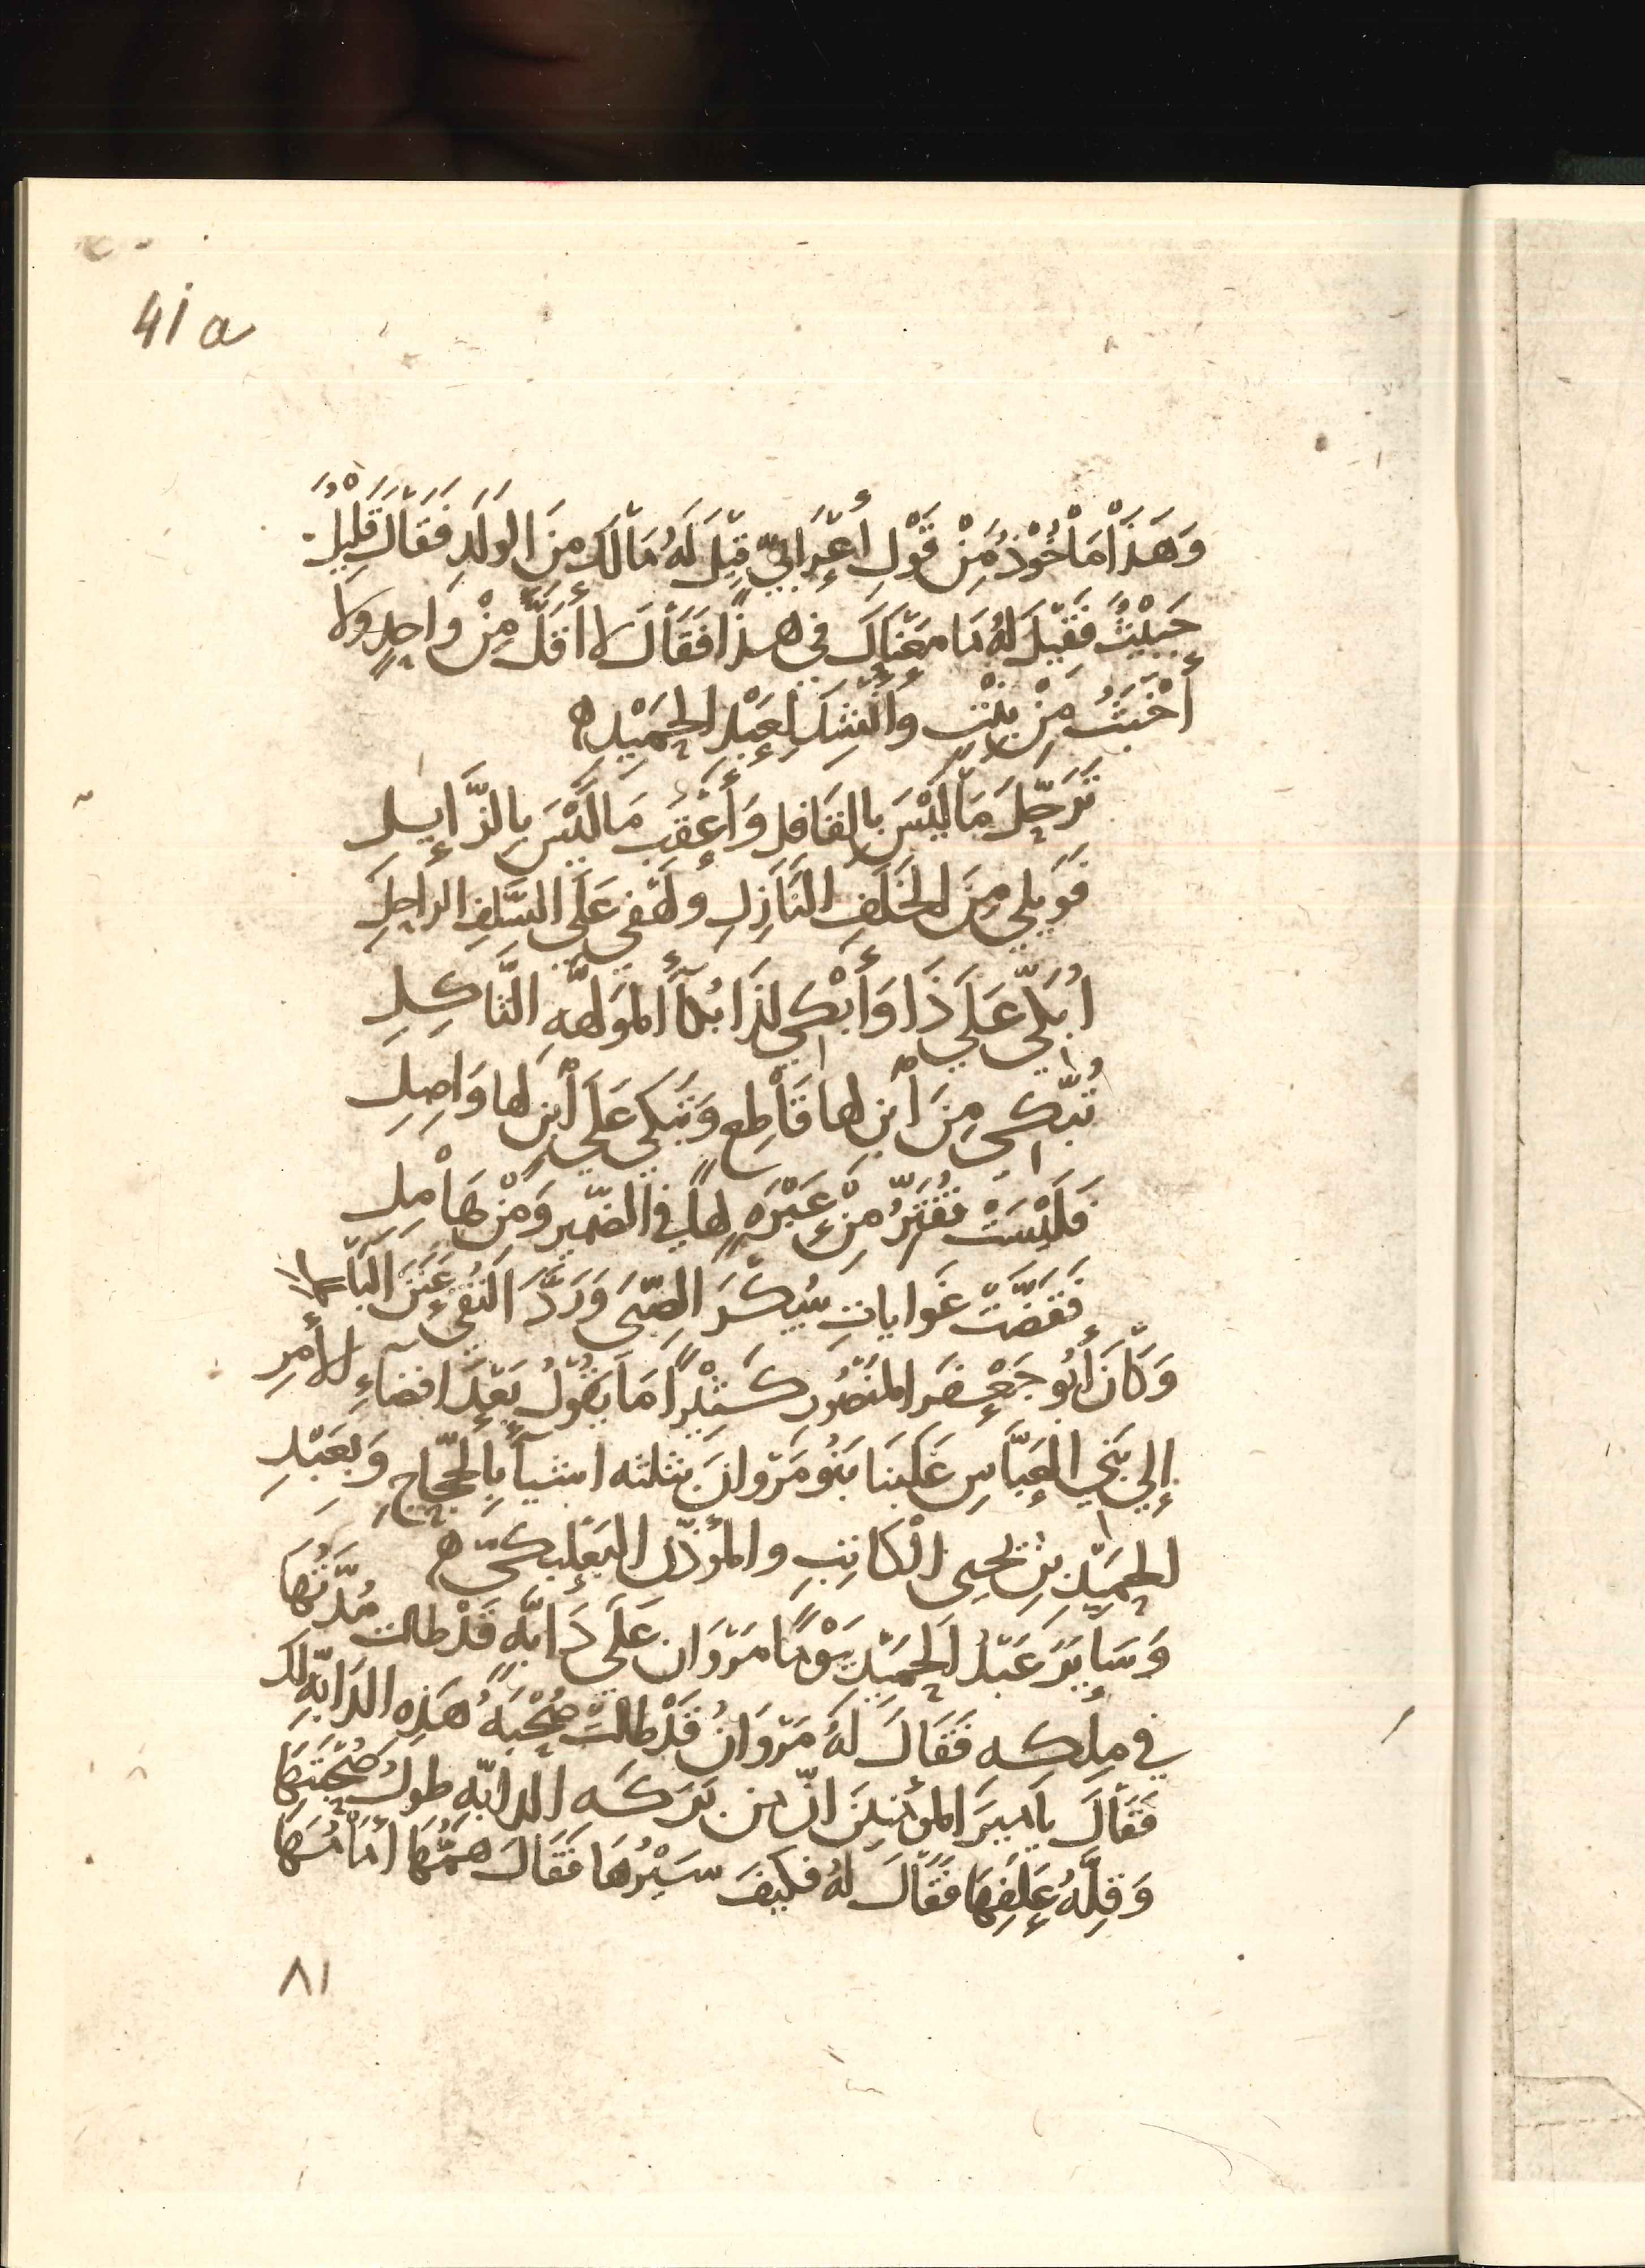 41a
وَهَذَا مَأْخُوْذٌ مِنْ قَوْلِ أَعْرَابِيّ قِيْلَ لَهُ مَا لَكَ مِنَ الوَلَدِ فَقَالَ قَلِيْلٌ
خَبِيْثٌ فَقِيْلَ لَهُ مَا مَعْنَاكَ فِي هَذَا فَقَالَ لا أَقَلَّ مِنْ وَاحِدٍ وَلا
أَخْبَثُ مِنْ بِنْتٍ وَأَنْشَدَ لِعَبْدِ الحَمِيْدِ ه
تَرَحَّلَ مَا لَيْسَ بِالقَافِلِ وَأَعْقَبَ مَا لَيْسَ بِالزَّايِلِ
فَوَيْلِي مِنَ الخَلَفِ النَّازِلِ وَلَهْفِي عَلَى السَّلَفِ الرَاحِلِ
أُبَكِّي عَلَى ذَا وَأَبْكِي لِذَا بُكَآءَ المُوَلَّهَةِ الثَّاكِلِ
تُبَكِّي مِنَ ابْنٍ لَهَا قَاطِعٍ وَتَبْكِي عَلَى ابْنٍ لَهَا وَاصِلِ
فَلَيْسَتْ تُفَتِّرُ مِنْ عَبْرَةٍ لَهَا فِي الضَمِيْرِ وَمِنْ هَامِلِ
تَقَضَّتْ غَوَايَاتِ سُكْرَ الصِّبَى وَرَدَّ التُقَى عَنَنَ البَاطِلِ
وَكَانَ أَبُو جَعْفَرِ المَنْصُوْرِ كَثِيْرًا مَا يَقُوْلُ بَعْدَ افضَاءِ الأَمْرِ
إِلَى بَنِي العَبَّاسِ غَلَبَنَا بَنُو مَرْوَانَ بثلثه اشيآءَ بِالحَجَّاجِ وَبِعَبْدِ
الحَمِيْدِ بْنِ يَحيى الْكَاتِبِ وَالمُؤَذِّنِ البَعْلَبَكِّيّ ه
وَسَايَرَ عَبْدُ الحَمِيْدِ يَوْمًا مَرْوَانَ عَلَى دَابَّةٍ قَدْ طَالَتْ مُدَّتُهَا
فِي مِلكِهِ فَقَالَ لَهُ مَرْوَانُ قَدْ طَالَتْ صُحْبَةُ هَذِهِ الدَابَّةِ لَكَ
فَقَالَ يَا أَمِيرَ المُؤْمِنِيْنَ انّ مِن بَرَكَةِ الدابّهِ طُولُ صُحْبَتِهَا
وَقِلَّةُ عَلَفِهَا فَقَالَ لَهُ فَكَيْفَ سَيْرُهَا فَقَالَ هَمُّهَا أَمَامُهَا
٨١